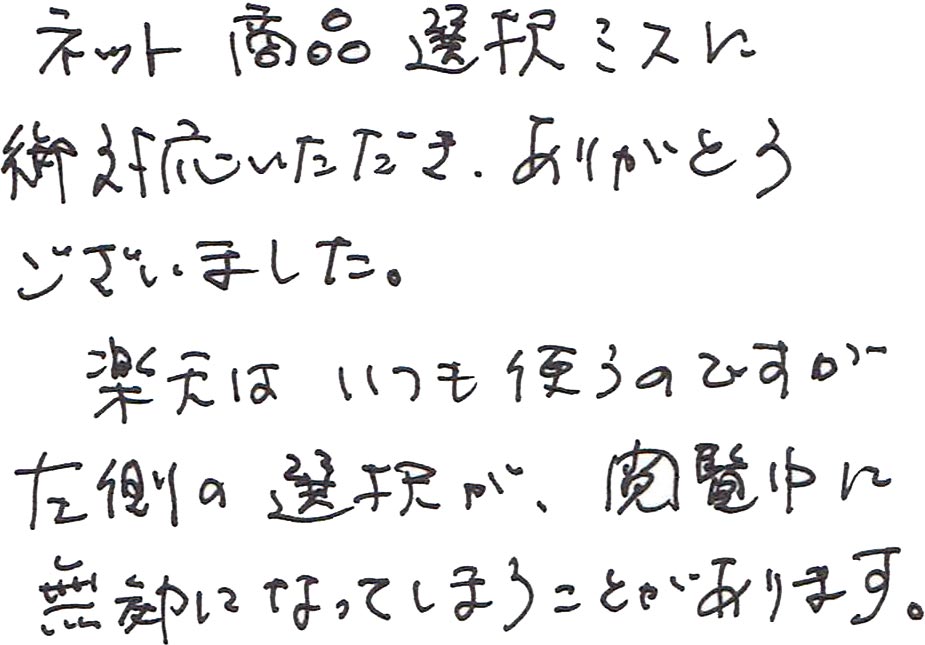 ネット 商品 選択ミスに
御対応いただき、ありがとう
ございました。
楽天は いつも使うのですが
左側の選択が、閲覧中に
無効になってしまうことがあります。